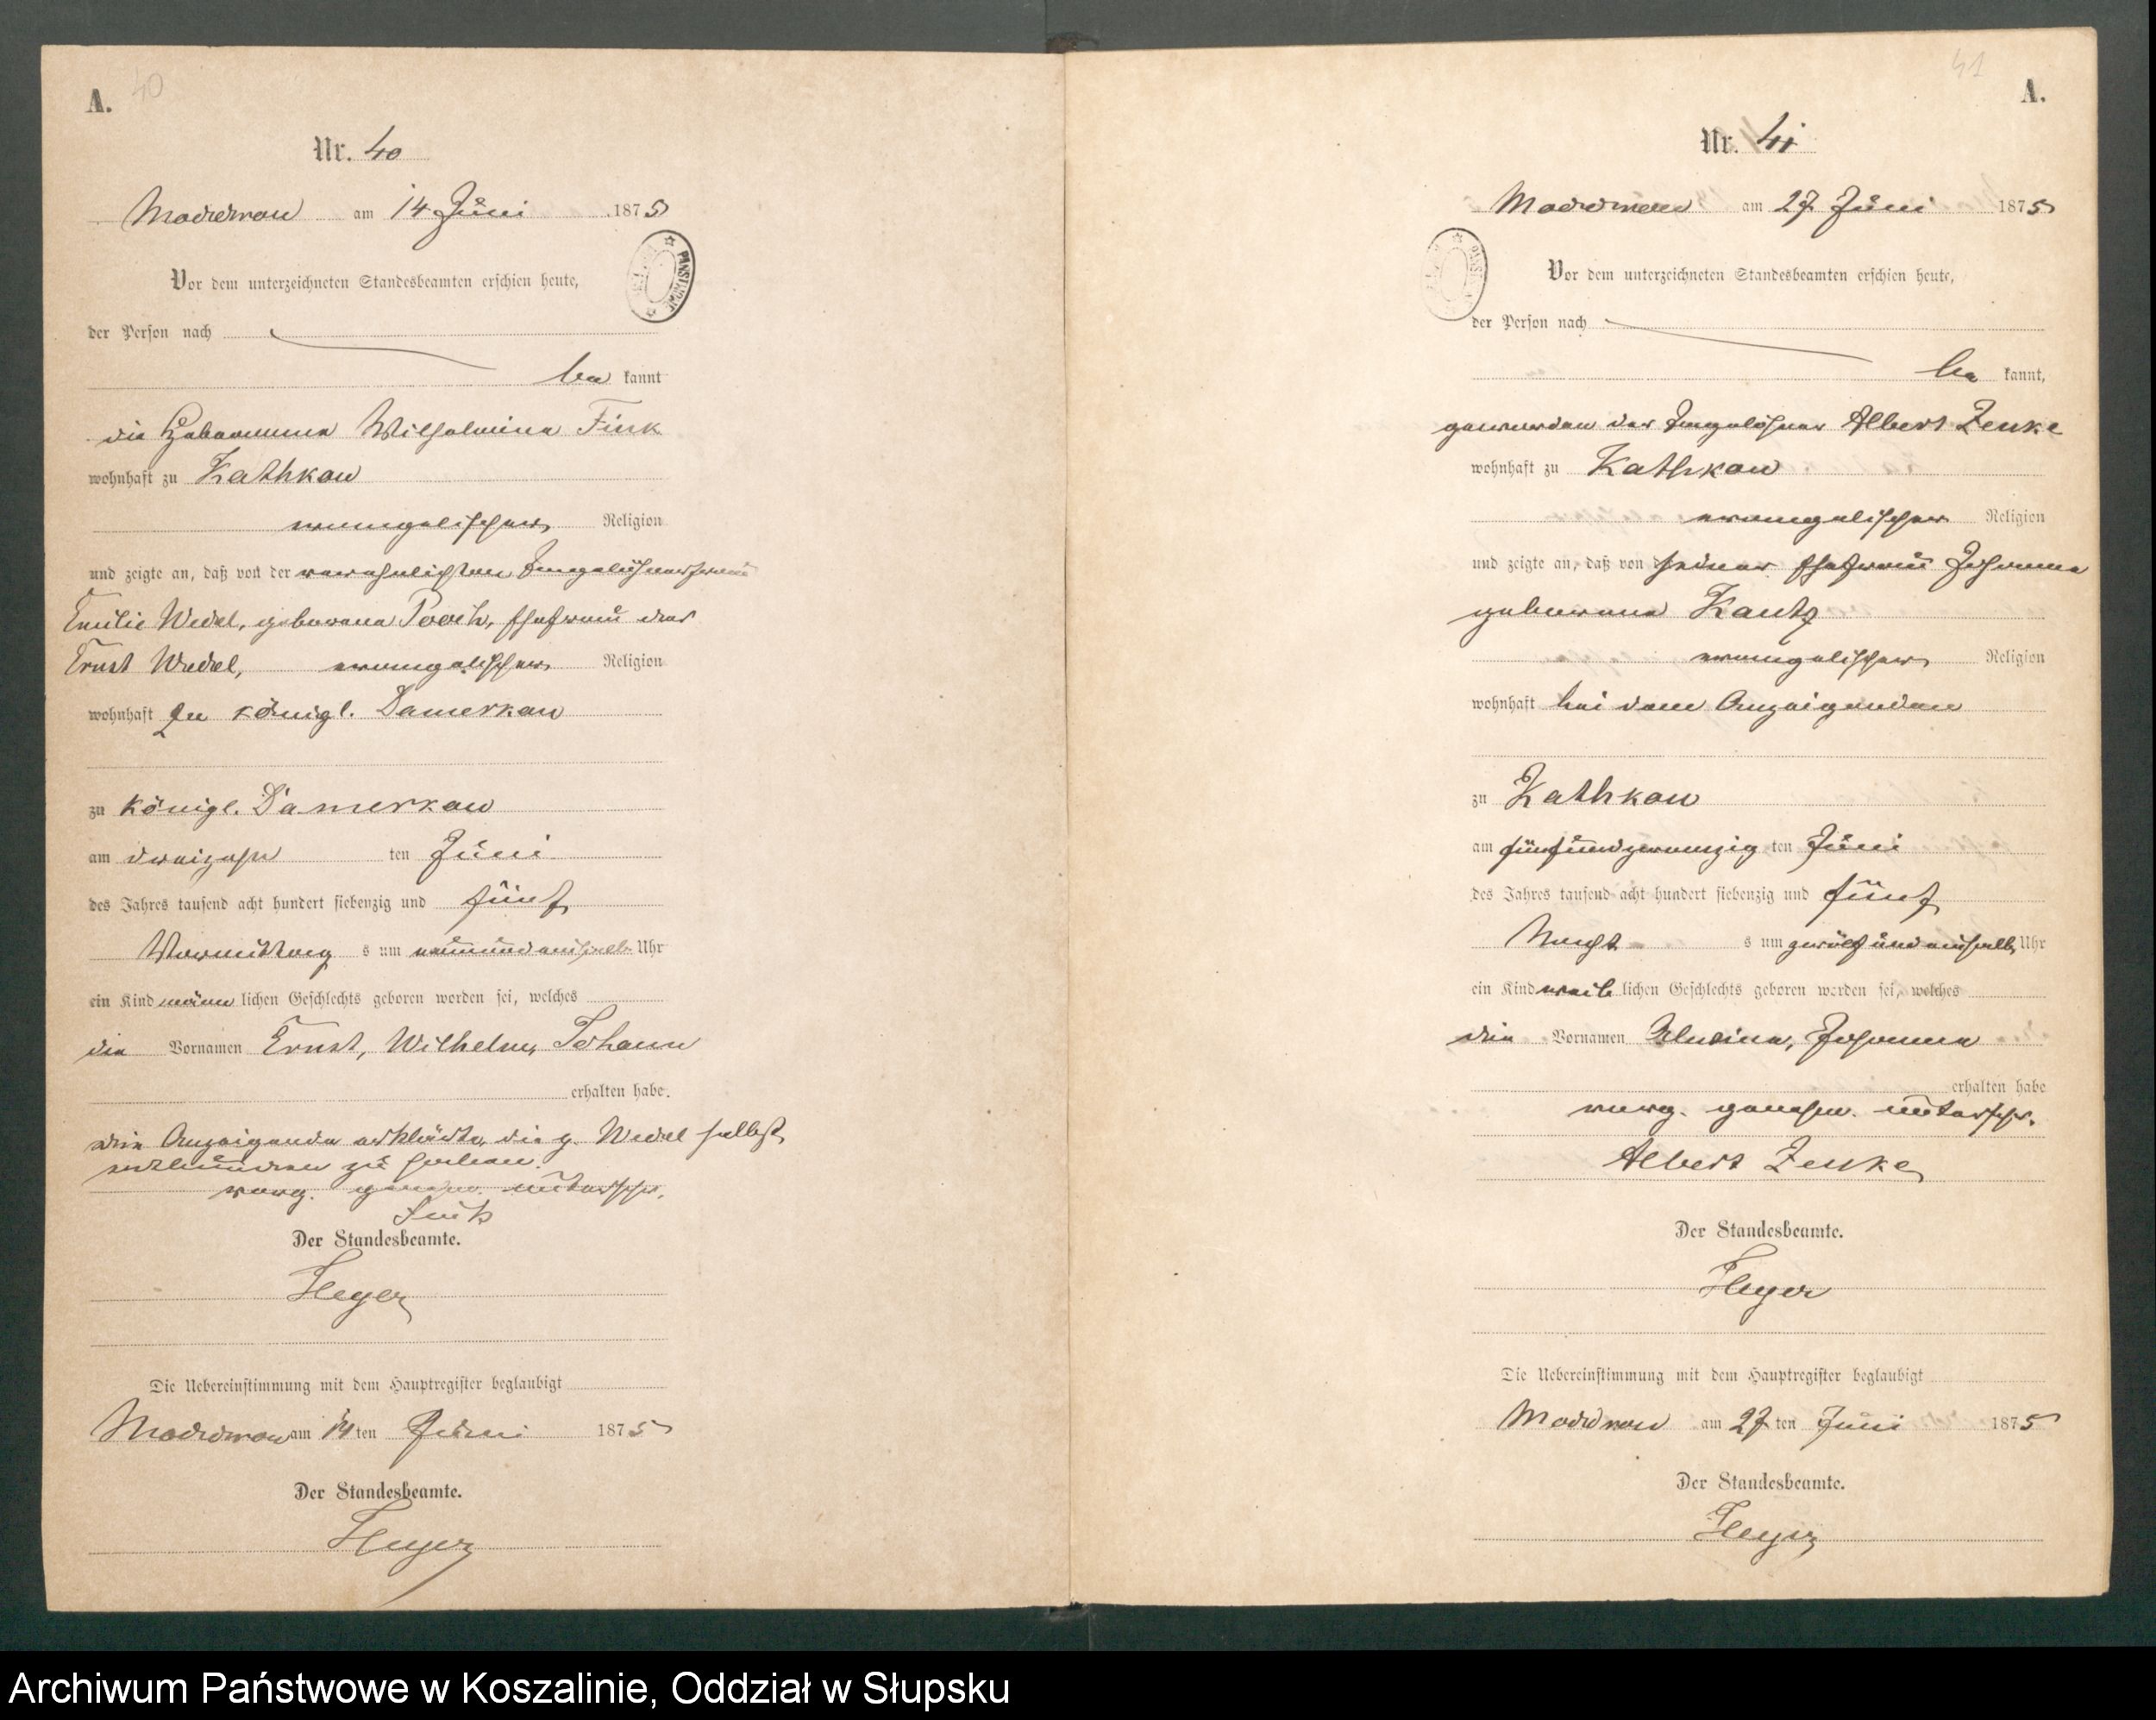 40
A.
Nr. 40
Moddrow am 14 Juni 1875
Vor dem unterzeichneten Standesbeamten erschien heute,
der Person nach
be kannt
die Hebamme Wilhelmine Fink
wohnhaft zu Kathkow
evangelischer Religion
und zeigte an, daß von der verehelichten Tagelöhnerfrau
Emilie Wedel, geborene Pooch, Ehefrau des
Ernst Wedel, evangelischer Religion
wohnhaft zu Königl. Damerkow
zu Königl. Damerkow
am dreizehn ten Juni
des Jahres tausend acht hundert siebenzig und fünf
Vormittag s um neunundeinhalb Uhr
ein Kind männ lichen Geschlechts geboren worden sei, welches
die Vornamen Ernst, Wilhelm, Johann
erhalten habe.
die Anzeigende erklärte, die p. Wedel selbst
entbunden zu haben.
vorg. genehm. unterschr.
Fink
Der Standesbeamte.
Heyer
Die Uebereinstimmung mit dem Hauptregister beglaubigt
Moddrow am 14 ten Juni 1875
Der Standesbeamte.
Heyer
41
A.
Nr. 41
Moddrow am 27 Juni 1875
Vor dem unterzeichneten Standesbeamten erschien heute,
der Person nach
be kannt,
geworden der Tagelöhner Albert Zenke
wohnhaft zu Kathkow
evangelischer Religion
und zeigte an, daß von seiner Ehefrau Johanna
geborene Kautz
evangelischer Religion
wohnhaft bei dem Anzeigenden
zu Kathkow
am fünfundzwanzig ten Juni
des Jahres tausend acht hundert siebenzig und fünf
Nacht s um zwölfundeinhalb Uhr
ein Kind weib lichen Geschlechts geboren worden sei, welches
die Vornamen Alwine, Johanna
erhalten habe
vorg. genehm. unterschr.
Albert Zenke
Der Standesbeamte.
Heyer
Die Uebereinstimmung mit dem Hauptregister beglaubigt
Moddrow am 27 ten Juni 1875
Der Standesbeamte.
Heyer
Archiwum Państwowe w Koszalinie, Oddział w Słupsku